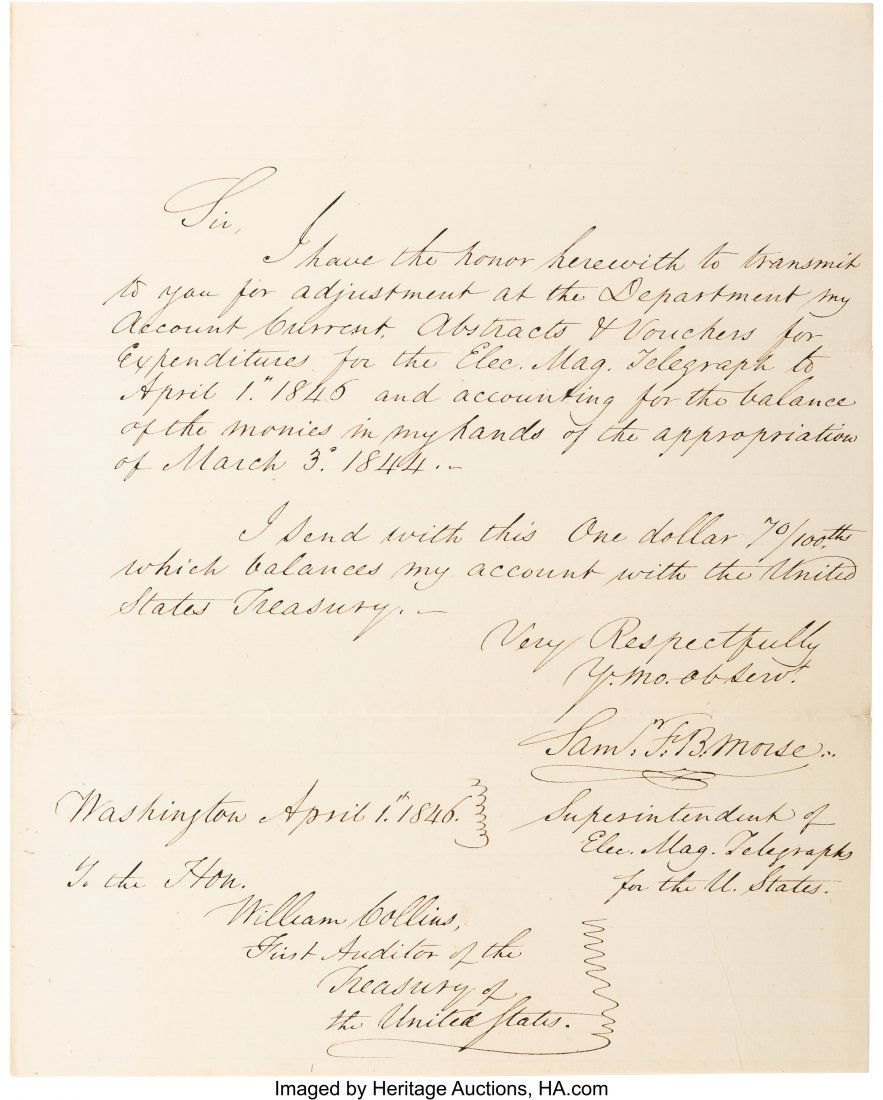 Sir,
I have the honor herewith to transmit
to you for adjustment at the Department, my
Account Current, Abstracts & Vouchers for
Expenditures for the Elec. Mag. Telegraph to
April 1.st 1846 and accounting for the balance
of the monies in my hands of the appropriation
of March 3d. 1844.—
I send with this One dollar 70/100ths
which balances my account with the United
States Treasury.—
Very Respectfully
Yr. mo. ob serv.t
Saml. F. B. Morse.
Washington April 1.st 1846.
Superintendent of
Elec. Mag. Telegraphs
for the U. States.
To the Hon.
William Collins,
First Auditor of the
Treasury of
the United States.
Imaged by Heritage Auctions, HA.com